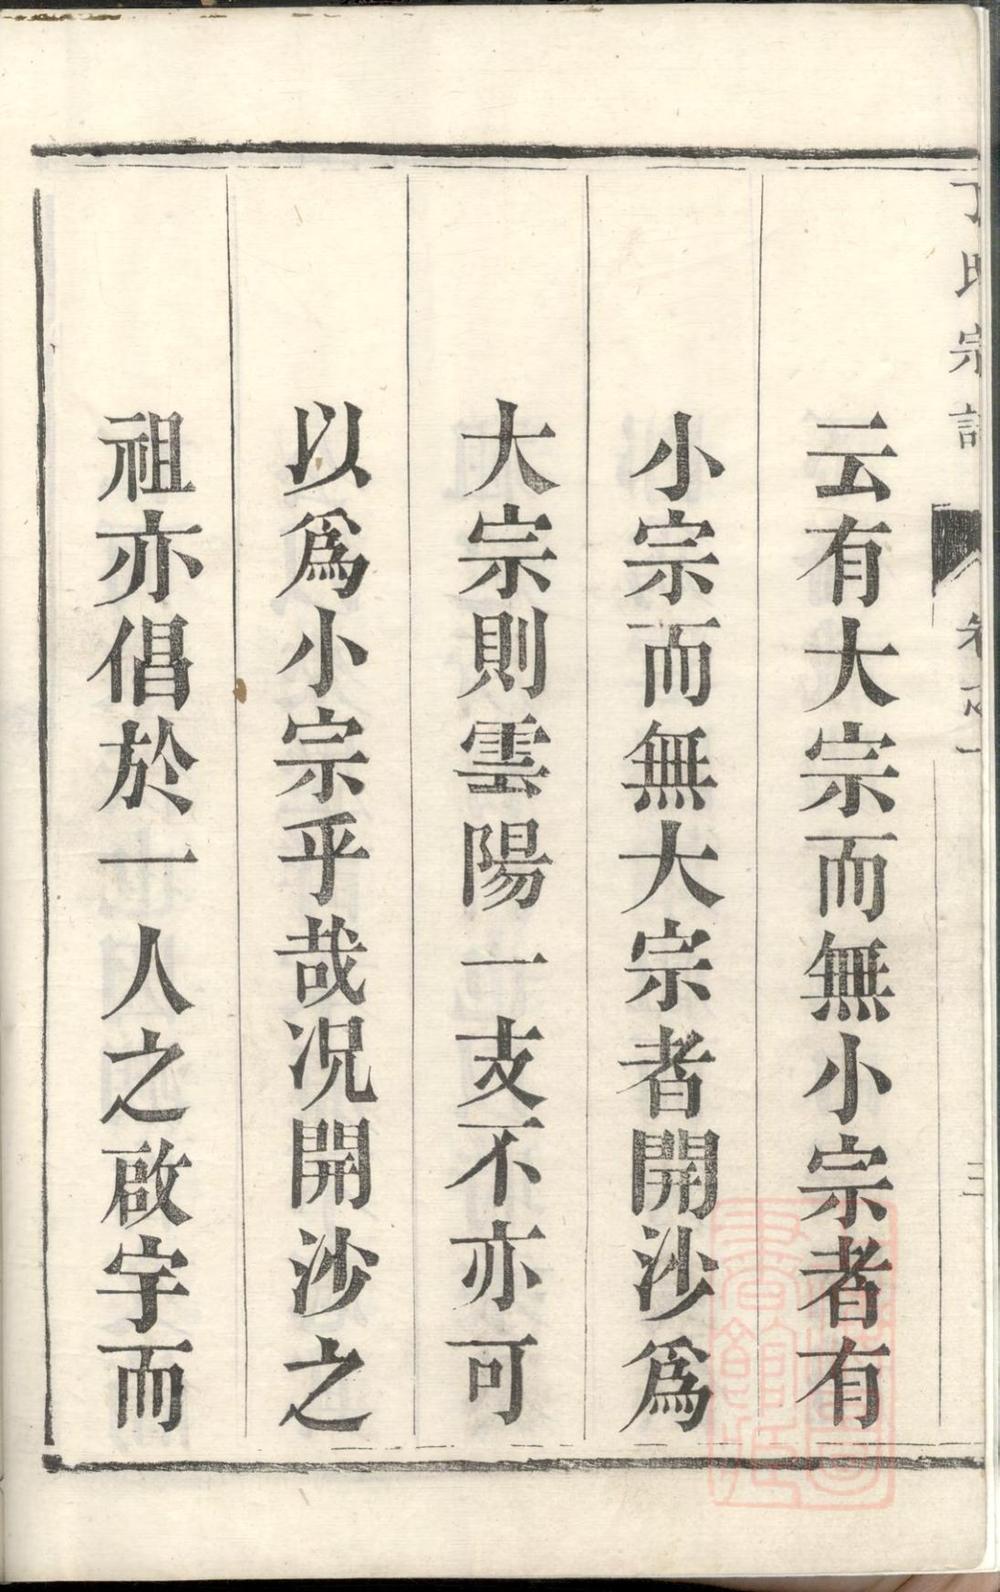 丁氏宗譜
卷之一
三
云有大宗而無小宗者有
小宗而無大宗者開沙爲
大宗則雲陽一支不亦可
以爲小宗乎哉况開沙之
祖亦倡於一人之啟宇而